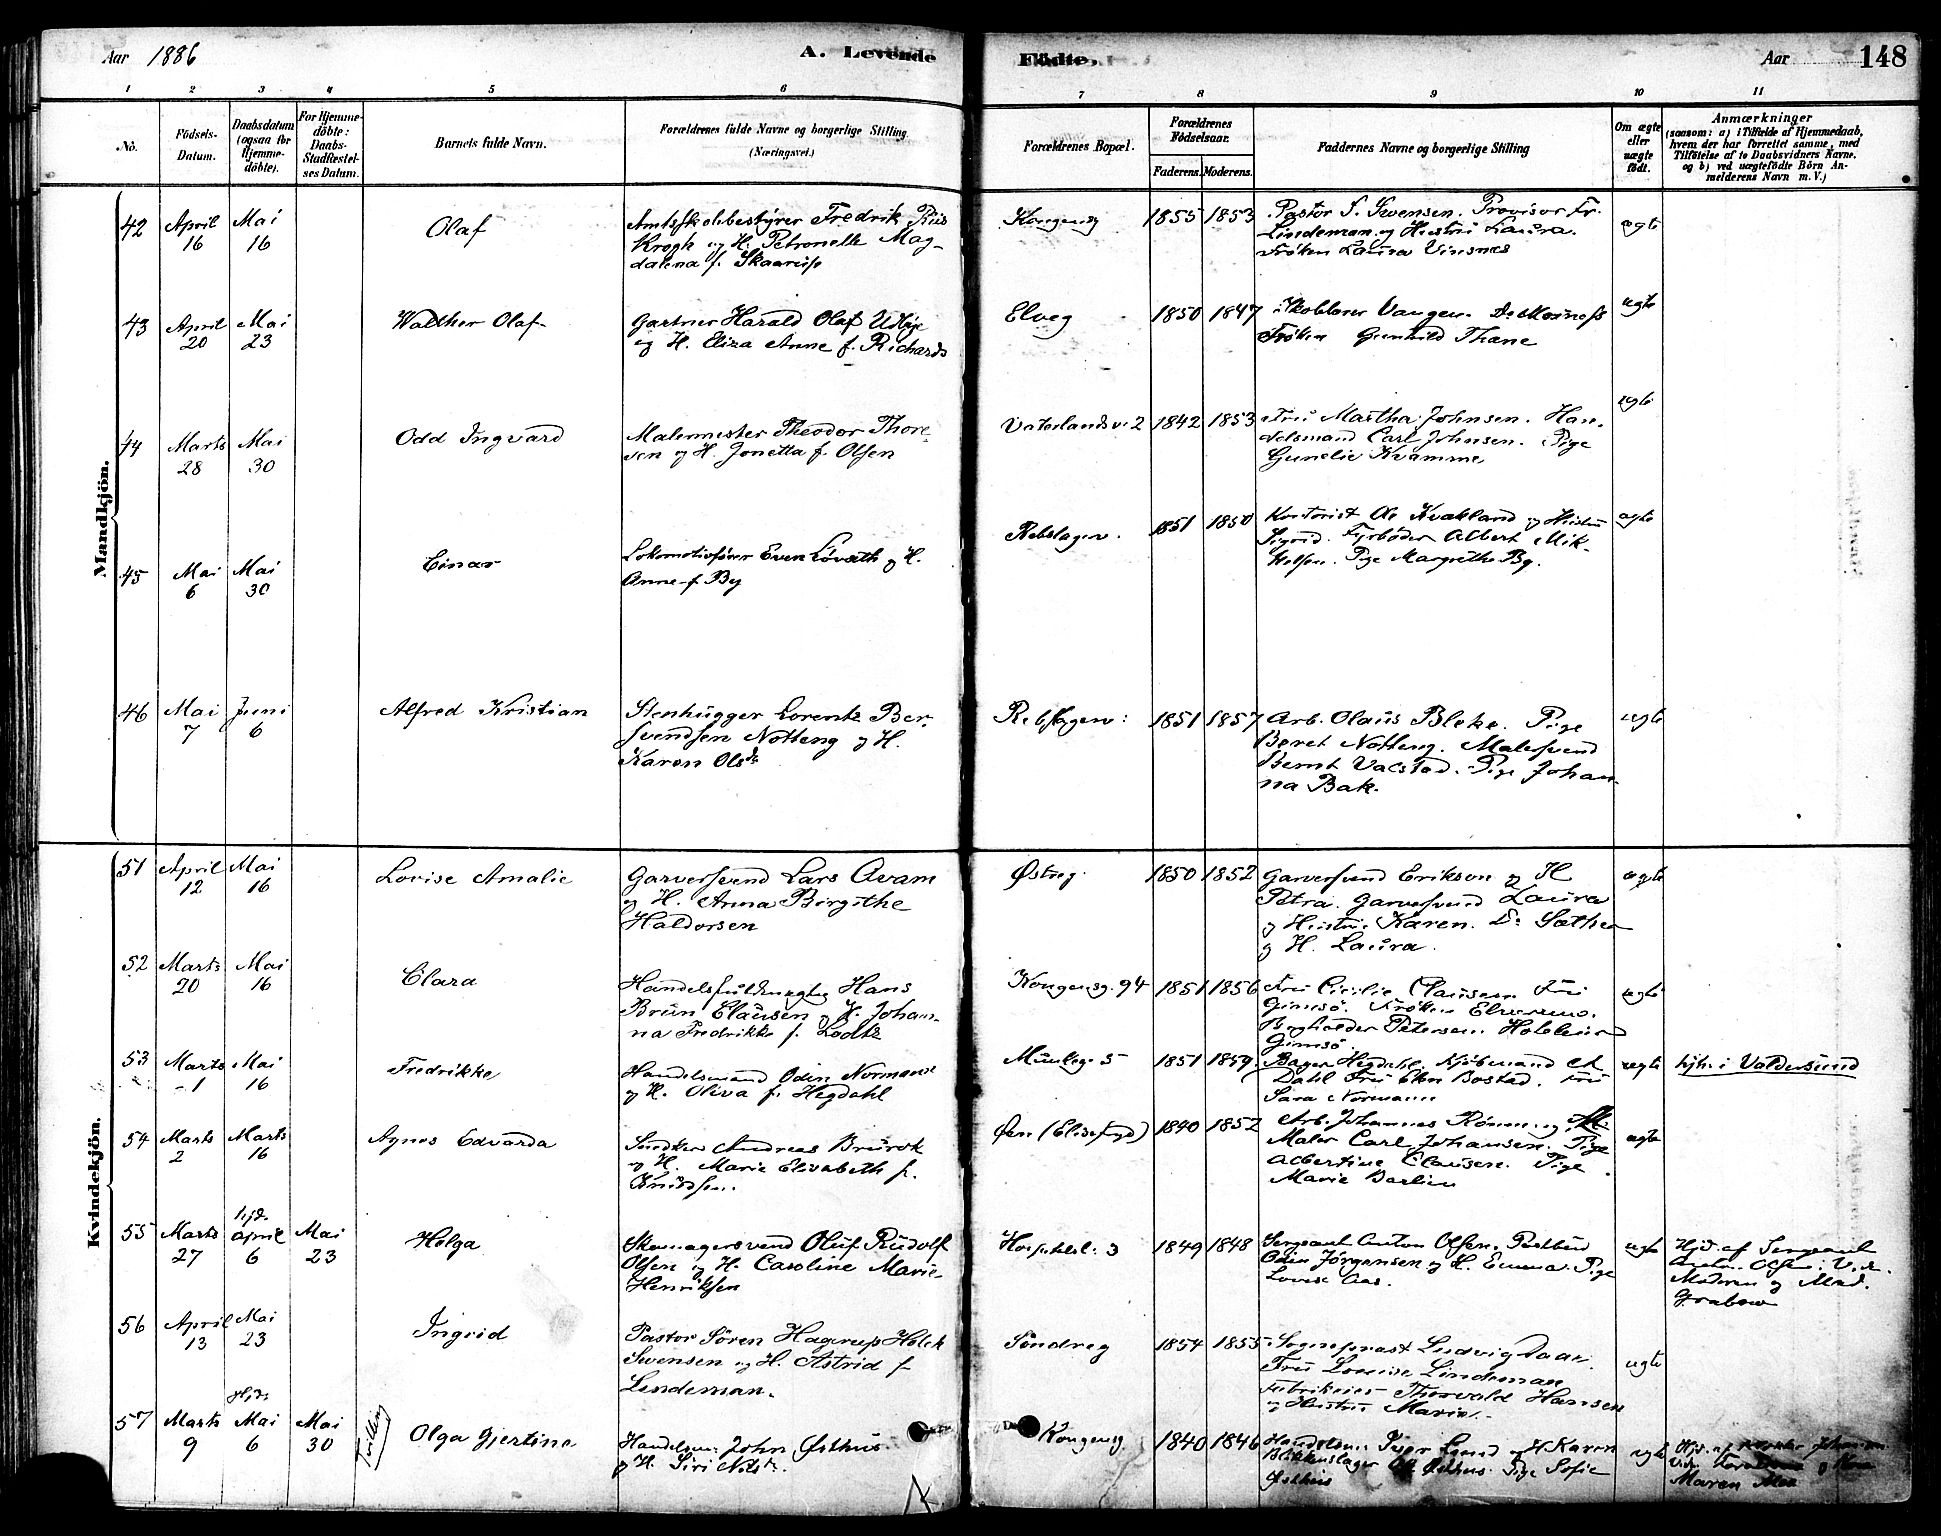 Aar 1886
A. Levende
Födte.
Aar
148
1 2 3 4 5 6 7 8 9 10 11
No.
Födsels-Datum.
Daabsdatum (ogsaa for Hjemme-döbte).
For Hjemme-döbte: Daabs-Stadfæstel-ses Datum.
Barnets fulde Navn.
Forældrenes fulde Navne og borgerlige Stilling
(Næringsvei.)
Forældrenes Bopæl.
Forældrenes Födselsaar.
Faderens. Moderens.
Faddernes Navne og borgerlige Stilling
Om ægte eller uægte födt.
Anmærkninger
(saasom: a) i Tilfælde af Hjemmedaab,
hvem der har forrettet samme, med
Tilföielse af to Daabsvidners Navne.
og b) ved uægtefödte Börn An-
melderens Navn m. V.)
Mandkjön.
42 April 16 Mai 16 Olaf
Amtsskolebestyrer Fredrik Riis
Krogh og H. Petronelle Mag-
dalena f. Skaarup
Kongensg 1855 1853
Pastor S. Svensen. Provisor Fr.
Lindeman og Hustru Laura.
Frøken Laura Vinsnes
ægte
43 April 20 Mai 23 Walther Olaf
Gartner Harald Olaf Udbye
og H. Eliza Anne f. Richards
Elveg 1850 1847
Skoblarer Vangen.
Frøken Gunhild Thane
ægte
44 Marts 28 Mai 30 Odd Ingvard
Malermester Theodor Thore-
sen og H. Jonetta f. Olsen
Vaterlandsv. 2 1842 1853
Fru Martha Johnsen. Han-
delsmand Carl Johnsen. Pige
Gunelie Kvamme
ægte
45 Mai 6 Mai 30 Einar
Lokomotivfører Even Løvseth og H.
Anne f. By
Rebslagerv. 1851 1850
Kontorist Ole Kvakland og Hustru
Sigrid. Fyrbøder Albert Mik-
kelsen. Pige Margrethe By.
ægte
46 Mai 7 Juni 6 Alfred Kristian
Stenhugger Lorents Ber-
svendsen Notteng og H.
Karen Olsdr
Rebslagerv: 1851 1857
Arb. Olaus Bleke. Pige
Beret Notteng. Malersvend
Bernt Vaestad. Pige Johan-
na Bak.
ægte
Kvindekjön.
51 April 12 Mai 16 Lovise Amalie
Garversvend Lars Aram
og H. Anna Birgithe
Haldorsen
Østreg. 1850 1852
Garversvend Erikson og H
Petra. Garversvend Laura
og Hustru Karen. Do Sæther
og H. Laura.
ægte
52 Marts 20 Mai 16 Clara
Handelsfuldmægtig Hans
Bruun Clausen og H. Johan-
na Fredrikke f. Lodtz
Kongensg. 94 1851 1856
Fru Cecilie Clausen Fru
Gimsø. Frøken Elverum.
Bogholder Petersen. Hoteleier
Gimsø.
ægte
53 Marts 1 Mai 16 Fredrikke
Handelsmand Odin Normann
og H. Oliva f. Hegdahl
Munkeg. 5 1851 1859
Bager Hegdahl Kjøbmand Chr
Dahl Fru Elen Bostad. Fru
Sara Normann
ægte
hjh. i Valdersund
54 Marts 2 Marts 16 Agnes Edvarda
Snedker Andreas Brurok
og H. Marie Elisabeth f.
Knudsen.
Øen (Elisefryd) 1840 1852
Arb. Johannes Rønning
Maler Carl Johansen. Pige
Albertine Clausen. Pige
Marie Barlien
ægte
55 Marts 27 hjd. April 6 Mai 23 Helga
Skomagersvend Oluf Rudolf
Olsen og H. Caroline Marie
Henriksen
Hospitalsl. 3 1849 1848
Sergeant Anton Olsen. Postbud
Odin Jørgensen og H. Emma. Pige
Lovise Aas.
ægte
Hjd. af Sergeant
Anton Olsen. Vid.
Moderen og Mad.
Grabow
56 April 13 Mai 23 Ingrid
Pastor Søren Hagerup Holck
Svensen og H. Astrid f
Lindeman.
Søndreg 1854 1855
Sogneprest Ludvig Daae.
Fru Louise Lindeman
Fabrikeier Thorvald Hansen
og Hustru Marie.
ægte
57 Marts 9 Hjd. Mai 6 Mai 30 Tvilling Olga Gjertine
Handelsm. John Østhus
og H. Siri Nilsdr.
Kongensg. 1840 1846
Handelsm. Iver Lund og H. Karen
Blikkenslager Ole Østhus. Pige Sofie
Østhus
ægte
Hjd. af
Vid. Forældrene og
Maren Moe